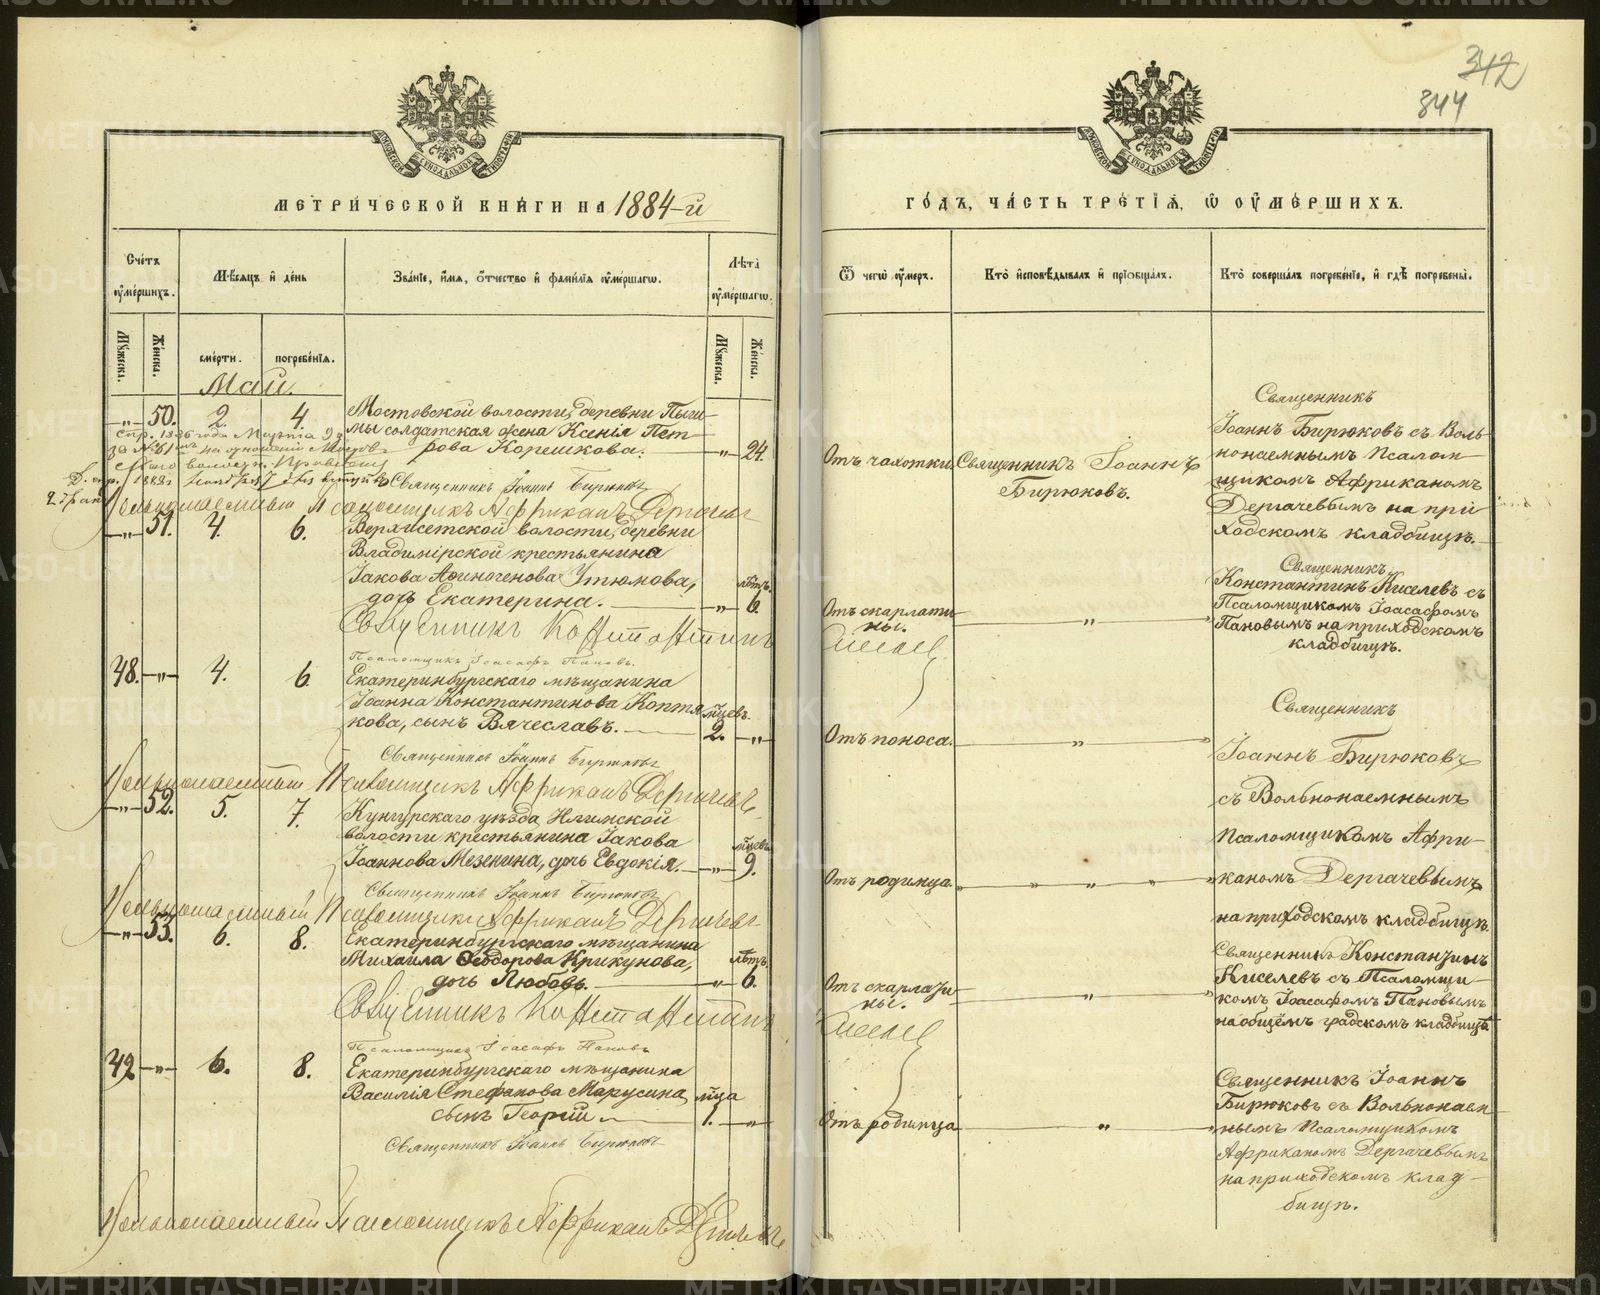 342
344
МЕТРИ́ЧЕСКОЙ КНИ́ГИ НА 1884-й
ГО́ДЪ, ЧА́СТЬ ТРЕ́ТІѦ, Ѡ ОУМЕ́РШИХЪ.
Сче́тъ оуме́ршихъ.
Мѣ́сяцъ и де́нь
Зва́ніе, и́мя, о́тчество и фами́лія оуме́ршагѡ.
Лѣта̀ оуме́ршагѡ.
Ѿ чегѡ̀ оу́меръ.
Кто̀ и҆сповѣ́дывалъ и прїѡбща́лъ.
Кто̀ соверша́лъ погребе́ніе, и гдѣ̀ погребены̀.
Мужеска.
Женска.
сме́рти.
погребе́нія.
Мужеска.
Женска.
Май.
—„— 50. 2. 4. Мостовской волости, деревни Пыши-
мы солдатская жена Ксенія Пет-
рова Корешкова. —„— 24.
Отъ чахотки.
Священникъ Іоаннъ
Бирюковъ.
Священникъ
Іоаннъ Бирюковъ съ Воль-
нонаемнымъ Псалом-
щикомъ Африканомъ
Дергачевымъ на при-
ходскомъ кладбищѣ.
Священникъ Іоаннъ Бирюковъ
Вольнонаемный Псаломщикъ Африканъ Дергачевъ
—„— 51. 4. 6. Верхисетской волости, деревни
Владимірской крестьянина
Іакова Аѳиногенова Утюмова,
дочь Екатерина. —„— лѣтъ. 6.
Отъ скарлати-
ны. — „ —
Священникъ
Константинъ Киселевъ съ
Псаломщикомъ Іоасафомъ
Пановымъ на приходскомъ
кладбищѣ.
Священникъ Константинъ Киселев
Псаломщикъ Іоасафъ Пановъ.
48. —„— 4. 6. Екатеринбургскаго мѣщанина
Іоанна Константинова Коптя-
кова, сынъ Вячеславъ. — мѣцевъ. 2. —„—
Отъ поноса. — „ —
Священникъ
Іоаннъ Бирюковъ
съ Вольнонаемнымъ
Псаломщикомъ Афри-
каномъ Дергачевымъ
на приходскомъ кладбищѣ.
Священникъ Іоаннъ Бирюковъ
Вольнонаемный Псаломщикъ Африканъ Дергачевъ
—„— 52. 5. 7. Кунгурскаго уѣзда Илимской
волости крестьянина Іакова
Іоаннова Мезенина, дочь Евдокія. —„— мѣцевъ 9.
Отъ родимца. „ „ „ „ „
Священникъ Іоаннъ Бирюковъ
Вольнонаемный Псаломщикъ Африканъ Дергачевъ
—„— 53. 6. 8. Екатеринбургскаго мѣщанина
Михаила Ѳеодорова Крикунова,
дочь Любовь. —„— лѣтъ. 6.
Отъ скарлати-
ны. — „ —
Священникъ Константинъ
Киселевъ съ Псаломщи-
комъ Іоасафомъ Пановымъ
на общемъ градскомъ кладбищѣ
Священникъ Константинъ Киселев
Псаломщикъ Іоасафъ Пановъ
42 —„— 6. 8. Екатеринбургскаго мѣщанина
Василія Стефанова Марусина,
сынъ Георгій — мѣца 1. —„—
Отъ родимца — „ —
Священникъ Іоаннъ
Бирюковъ съ Вольнонаем-
нымъ Псаломщикомъ
Африканомъ Дергачевымъ
на приходскомъ клад-
бищѣ.
Священникъ Іоаннъ Бирюковъ
Вольнонаемный Псаломщикъ Африканъ Дергачевъ
METRIKI.GASO-URAL.RU